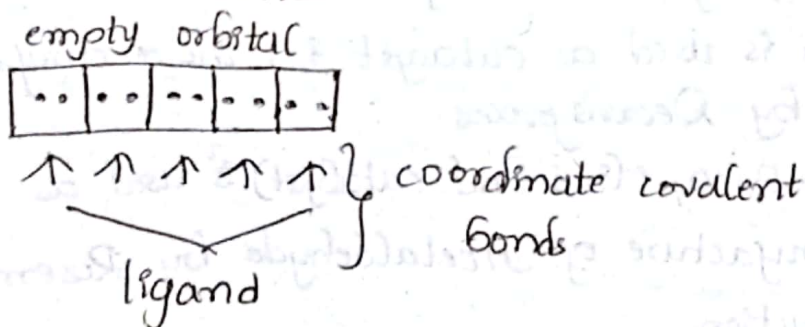 empty orbital
coordinate covalent
bonds
ligand